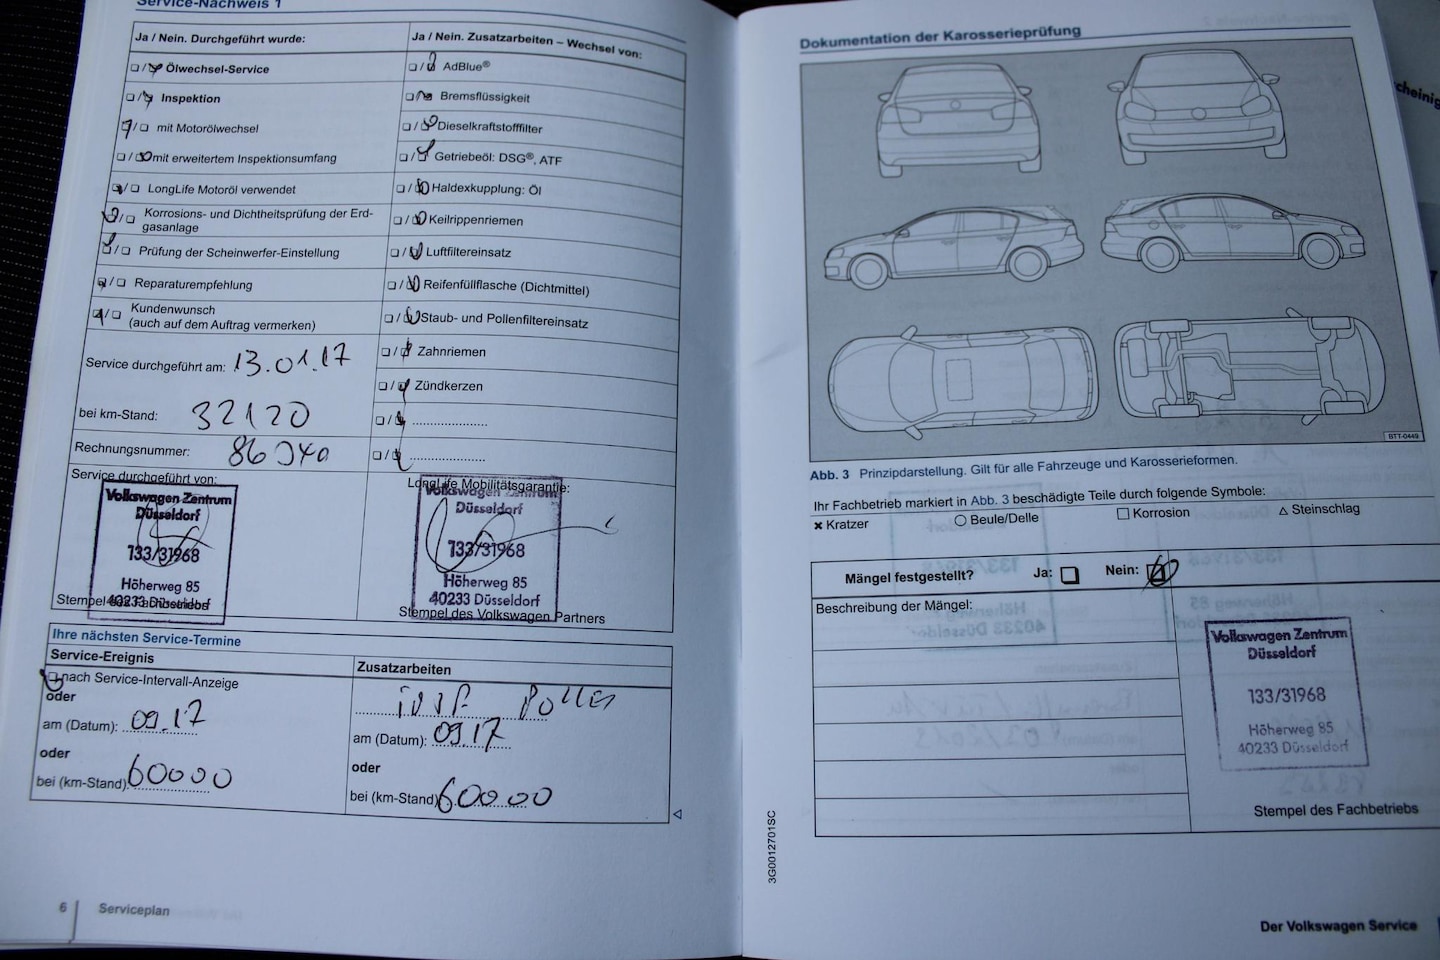 Service-Nachweis 1
Ja / Nein. Durchgeführt wurde:
Ja / Nein. Zusatzarbeiten – Wechsel von:
Ölwechsel-Service
AdBlue®
Inspektion
Bremsflüssigkeit
mit Motorölwechsel
Dieselkraftstofffilter
mit erweitertem Inspektionsumfang
Getriebeöl: DSG®, ATF
LongLife Motoröl verwendet
Haldexkupplung: Öl
Korrosions- und Dichtheitsprüfung der Erd-
gasanlage
Keilrippenriemen
Prüfung der Scheinwerfer-Einstellung
Luftfiltereinsatz
Reparaturempfehlung
Reifenfüllflasche (Dichtmittel)
Kundenwunsch
(auch auf dem Auftrag vermerken)
Staub- und Pollenfiltereinsatz
Zahnriemen
Service durchgeführt am: 13.01.17
Zündkerzen
bei km-Stand: 32120
Rechnungsnummer:
Service durchgeführt von:
Volkswagen Zentrum
Düsseldorf
133/31968
Höherweg 85
40233 Düsseldorf
Stempel des Fachbetriebs
LongLife Mobilitätsgarantie:
Volkswagen Zentrum
Düsseldorf
133/31968
Höherweg 85
40233 Düsseldorf
Stempel des Volkswagen Partners
Ihre nächsten Service-Termine
Service-Ereignis
Zusatzarbeiten
nach Service-Intervall-Anzeige
oder
am (Datum): 09.17
oder
bei (km-Stand): 60000
am (Datum): 09.17
oder
bei (km-Stand) 60000
6
Serviceplan
Dokumentation der Karosserieprüfung
BTT-0449
Abb. 3 Prinzipdarstellung. Gilt für alle Fahrzeuge und Karosserieformen.
Ihr Fachbetrieb markiert in Abb. 3 beschädigte Teile durch folgende Symbole:
Kratzer
Beule/Delle
Korrosion
Steinschlag
Mängel festgestellt?
Ja:
Nein:
Beschreibung der Mängel:
Volkswagen Zentrum
Düsseldorf
133/31968
Höherweg 85
40233 Düsseldorf
Stempel des Fachbetriebs
3G0012701SC
Der Volkswagen Service